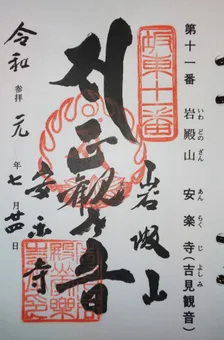 第十一番 岩殿山 安楽寺(吉見観音)
いわ どの ざん あん らく じ よし み
坂東十一番
岩殿山
正観世音
安楽寺
令和元年七月廿四日
参拝